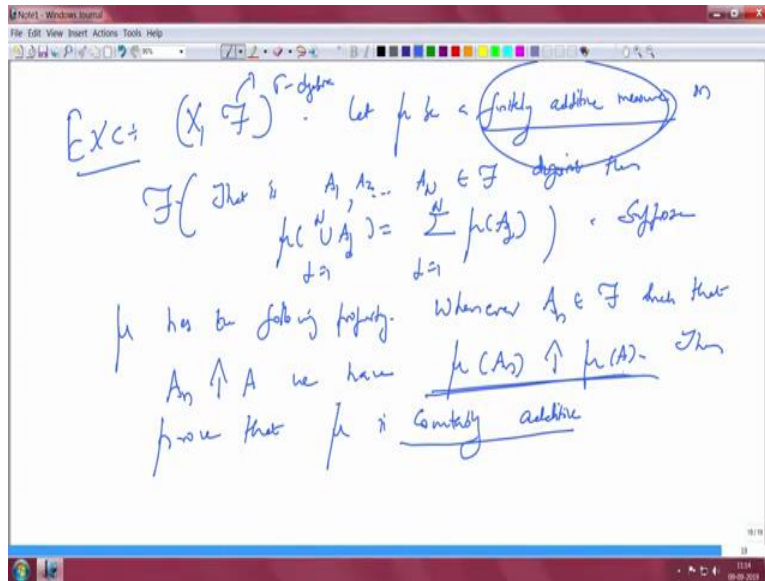 Note1 - Windows Journal
File Edit View Insert Actions Tools Help
Exc: (X, F) σ-algebra. Let μ be a finitely additive measure on
F ( That is A₁, A₂, ... A_N ∈ F disjoint then
μ(⋃_{j=1}^{N} A_j) = ∑_{j=1}^{N} μ(A_j) ). Suppose
μ has the following property. Whenever A_n ∈ F such that
A_n ↑ A we have μ(A_n) ↑ μ(A). Then
prove that μ is countably additive
18/18
18
11:14
09-09-2019